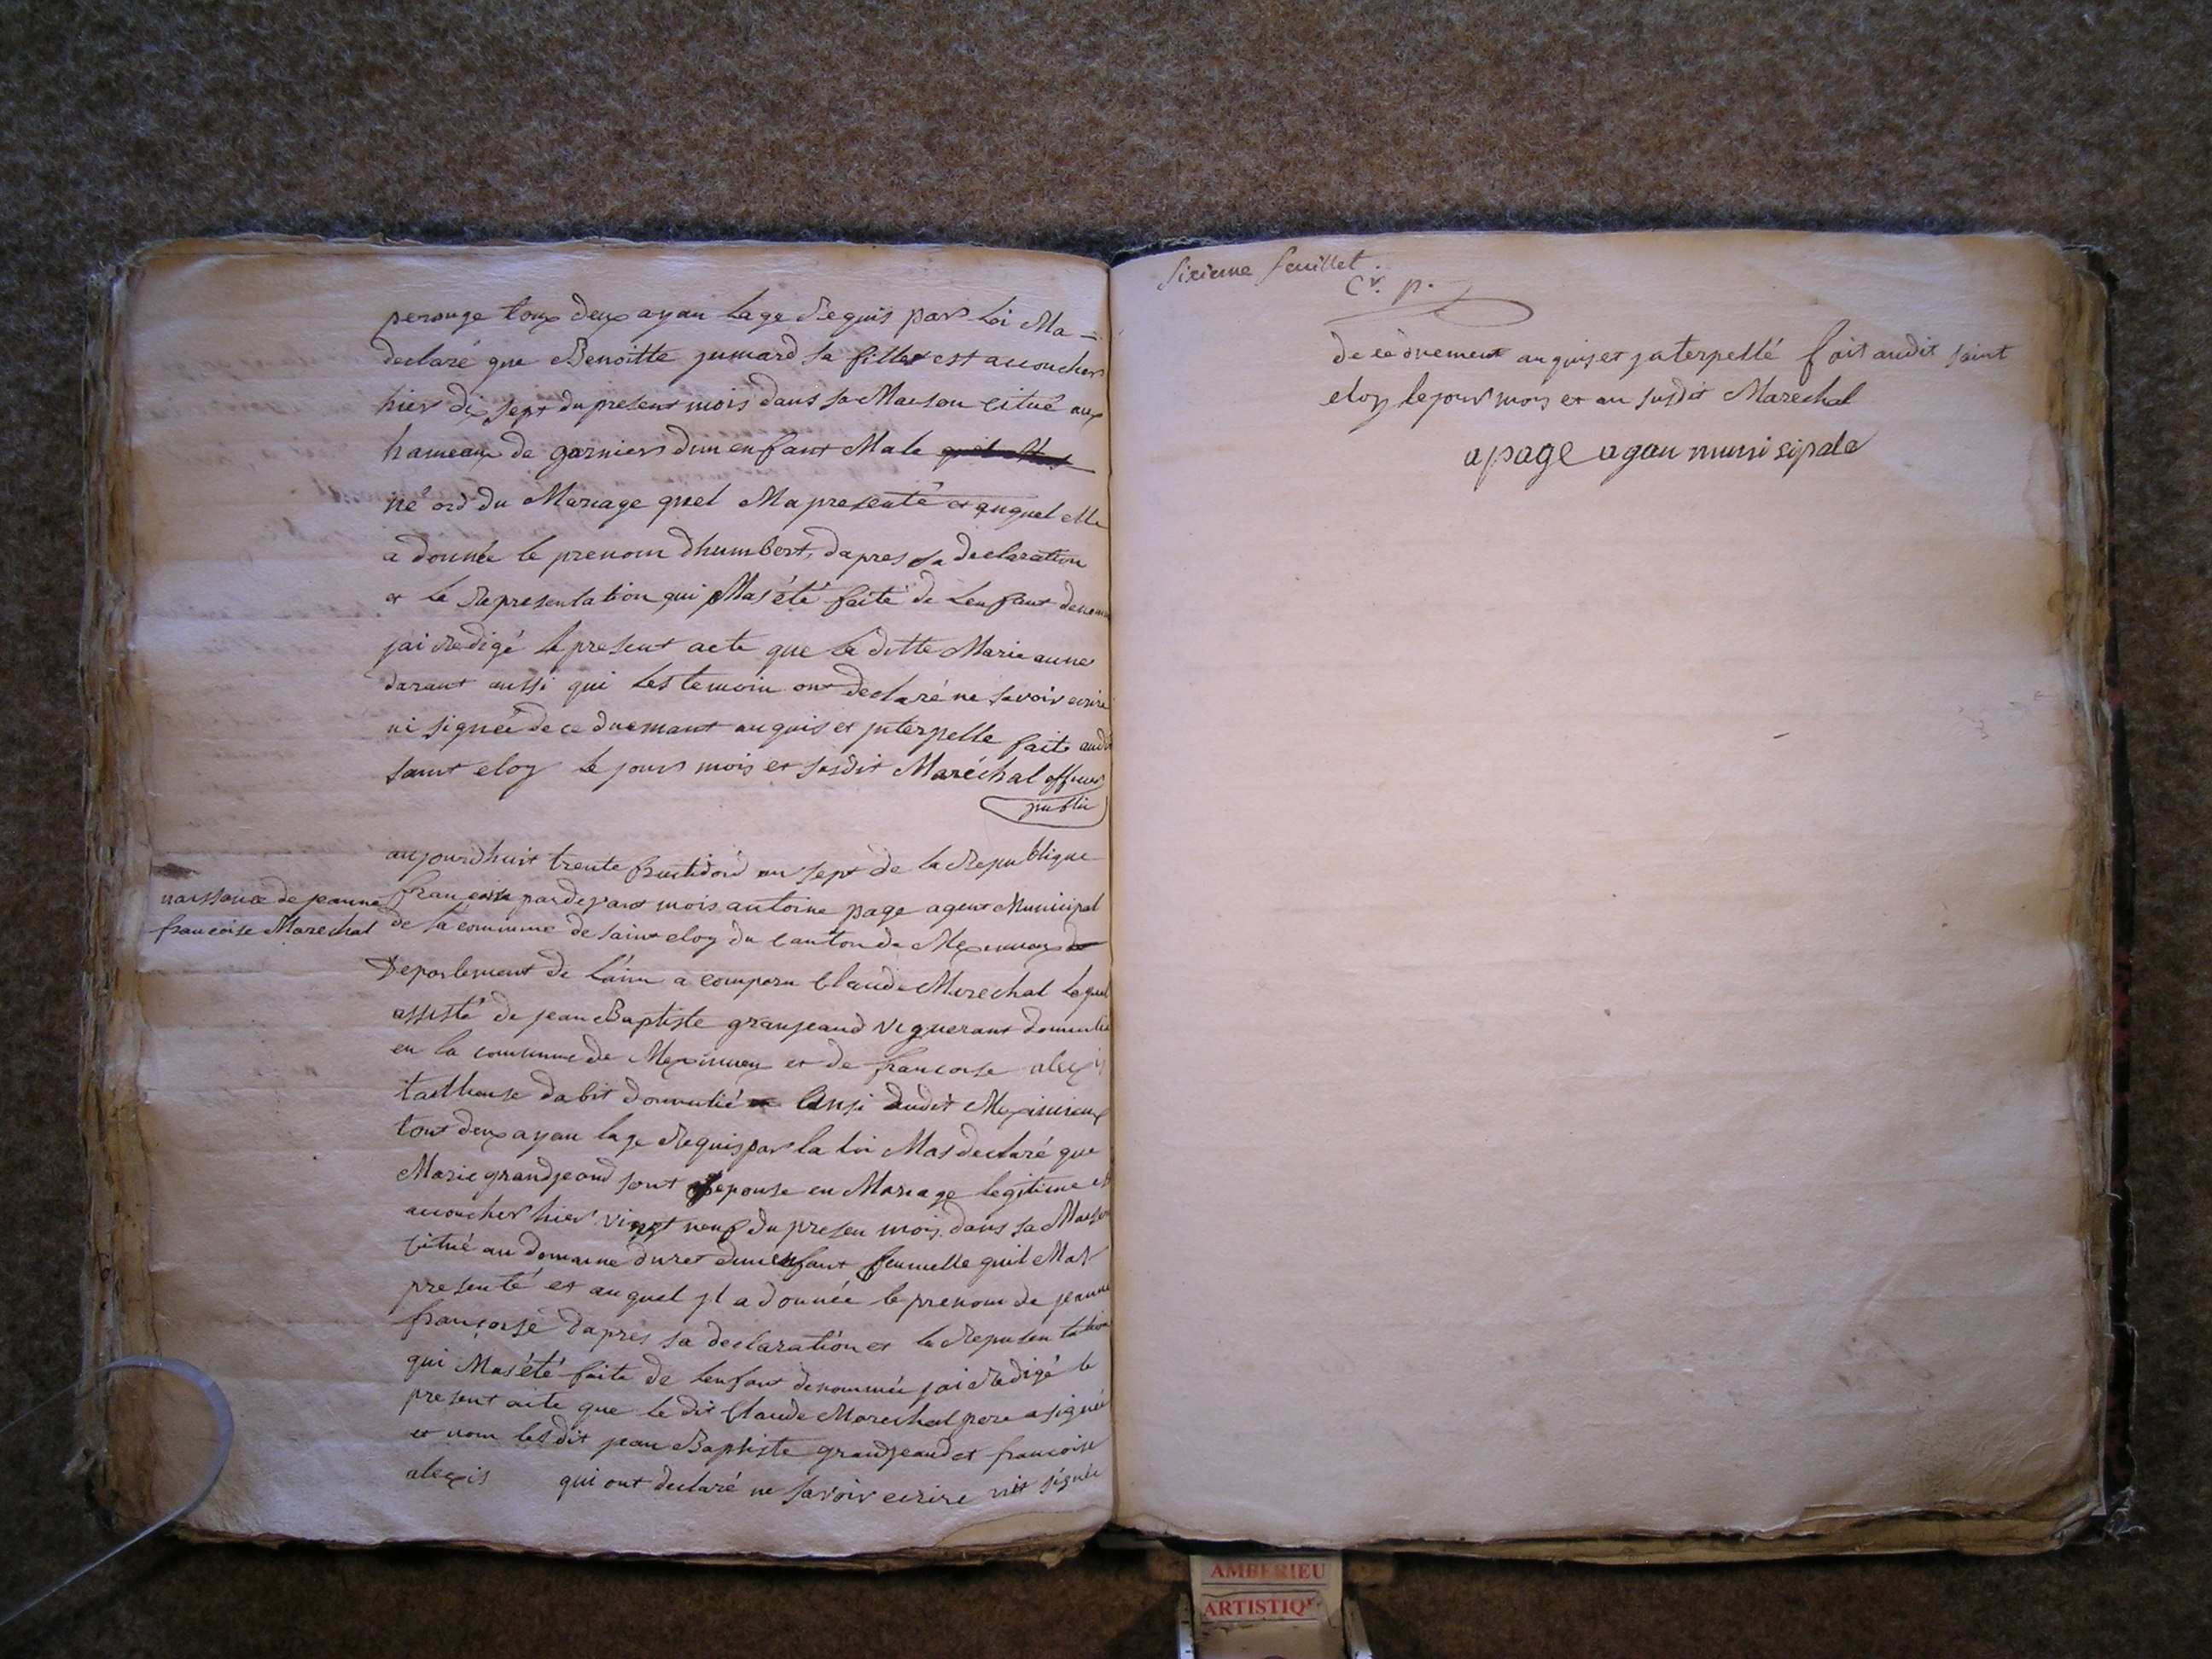 perouge toux deux ayan lage Requis par loi Ma =
declaré que Benoitte jumard sa fille est accoucher
hier dix sept du present mois dans sa Maison citué aux
hameaux de garniers dun enfant Male
né ord du Mariage quel Ma presenté et auquel elle
a donnée le prenom dhumbert, dapres sa declaration
et la Representation qui Mas été faite de Lenfant denommé
jai Redigé le present acte que la ditte Marie anne
darant aussi qui les temoin ont declaré ne savoir ecrire
ni signée de ce duemant anquis et jnterpelle fait audit
saint eloy le jours mois et susdit Maréchal officier
public
aujourdhuit trente fructidord an sept de la Republique
naissance de jeanne
francoise Marechal
francaise pardevant mois antoine page agent Municipal
de la commune de saint eloy du canton de Meximieux
Departement de L'ain a comparu Claude Marechal lequel
assisté de jean Baptiste granjeand vigneront domicilié
en la commune de Meximieux et de francoise alexis
tailleuse dabit domicilié ausi audit Meximieux
tout deux ayan lage Requis par la loi Mas declaré que
Marie grandjeand sont epouse en Mariage legitime est
accoucher hier vingt neuf du presen mois dans sa Maison
citué au domaine duret dun enfant femelle quil Mas
presenté et auquel jl a donnée le prenom de jeanne
françoise dapres sa declaration et la Representation
qui Mas été faite de lenfant denommée jai Redigé le
present aite que le dit Claude Marechal pere a signée
et nom les dit jean Baptiste grandjeand et francoise
alexis qui ont declaré ne savoir ecrire nit signée
sixieme feuillet.
cv. p.
de ce duement anquis et jnterpellé fait audit saint
eloy le jour mois et an susdit Marechal
a page agan munisipale
AMBERIEU
ARTISTIQ